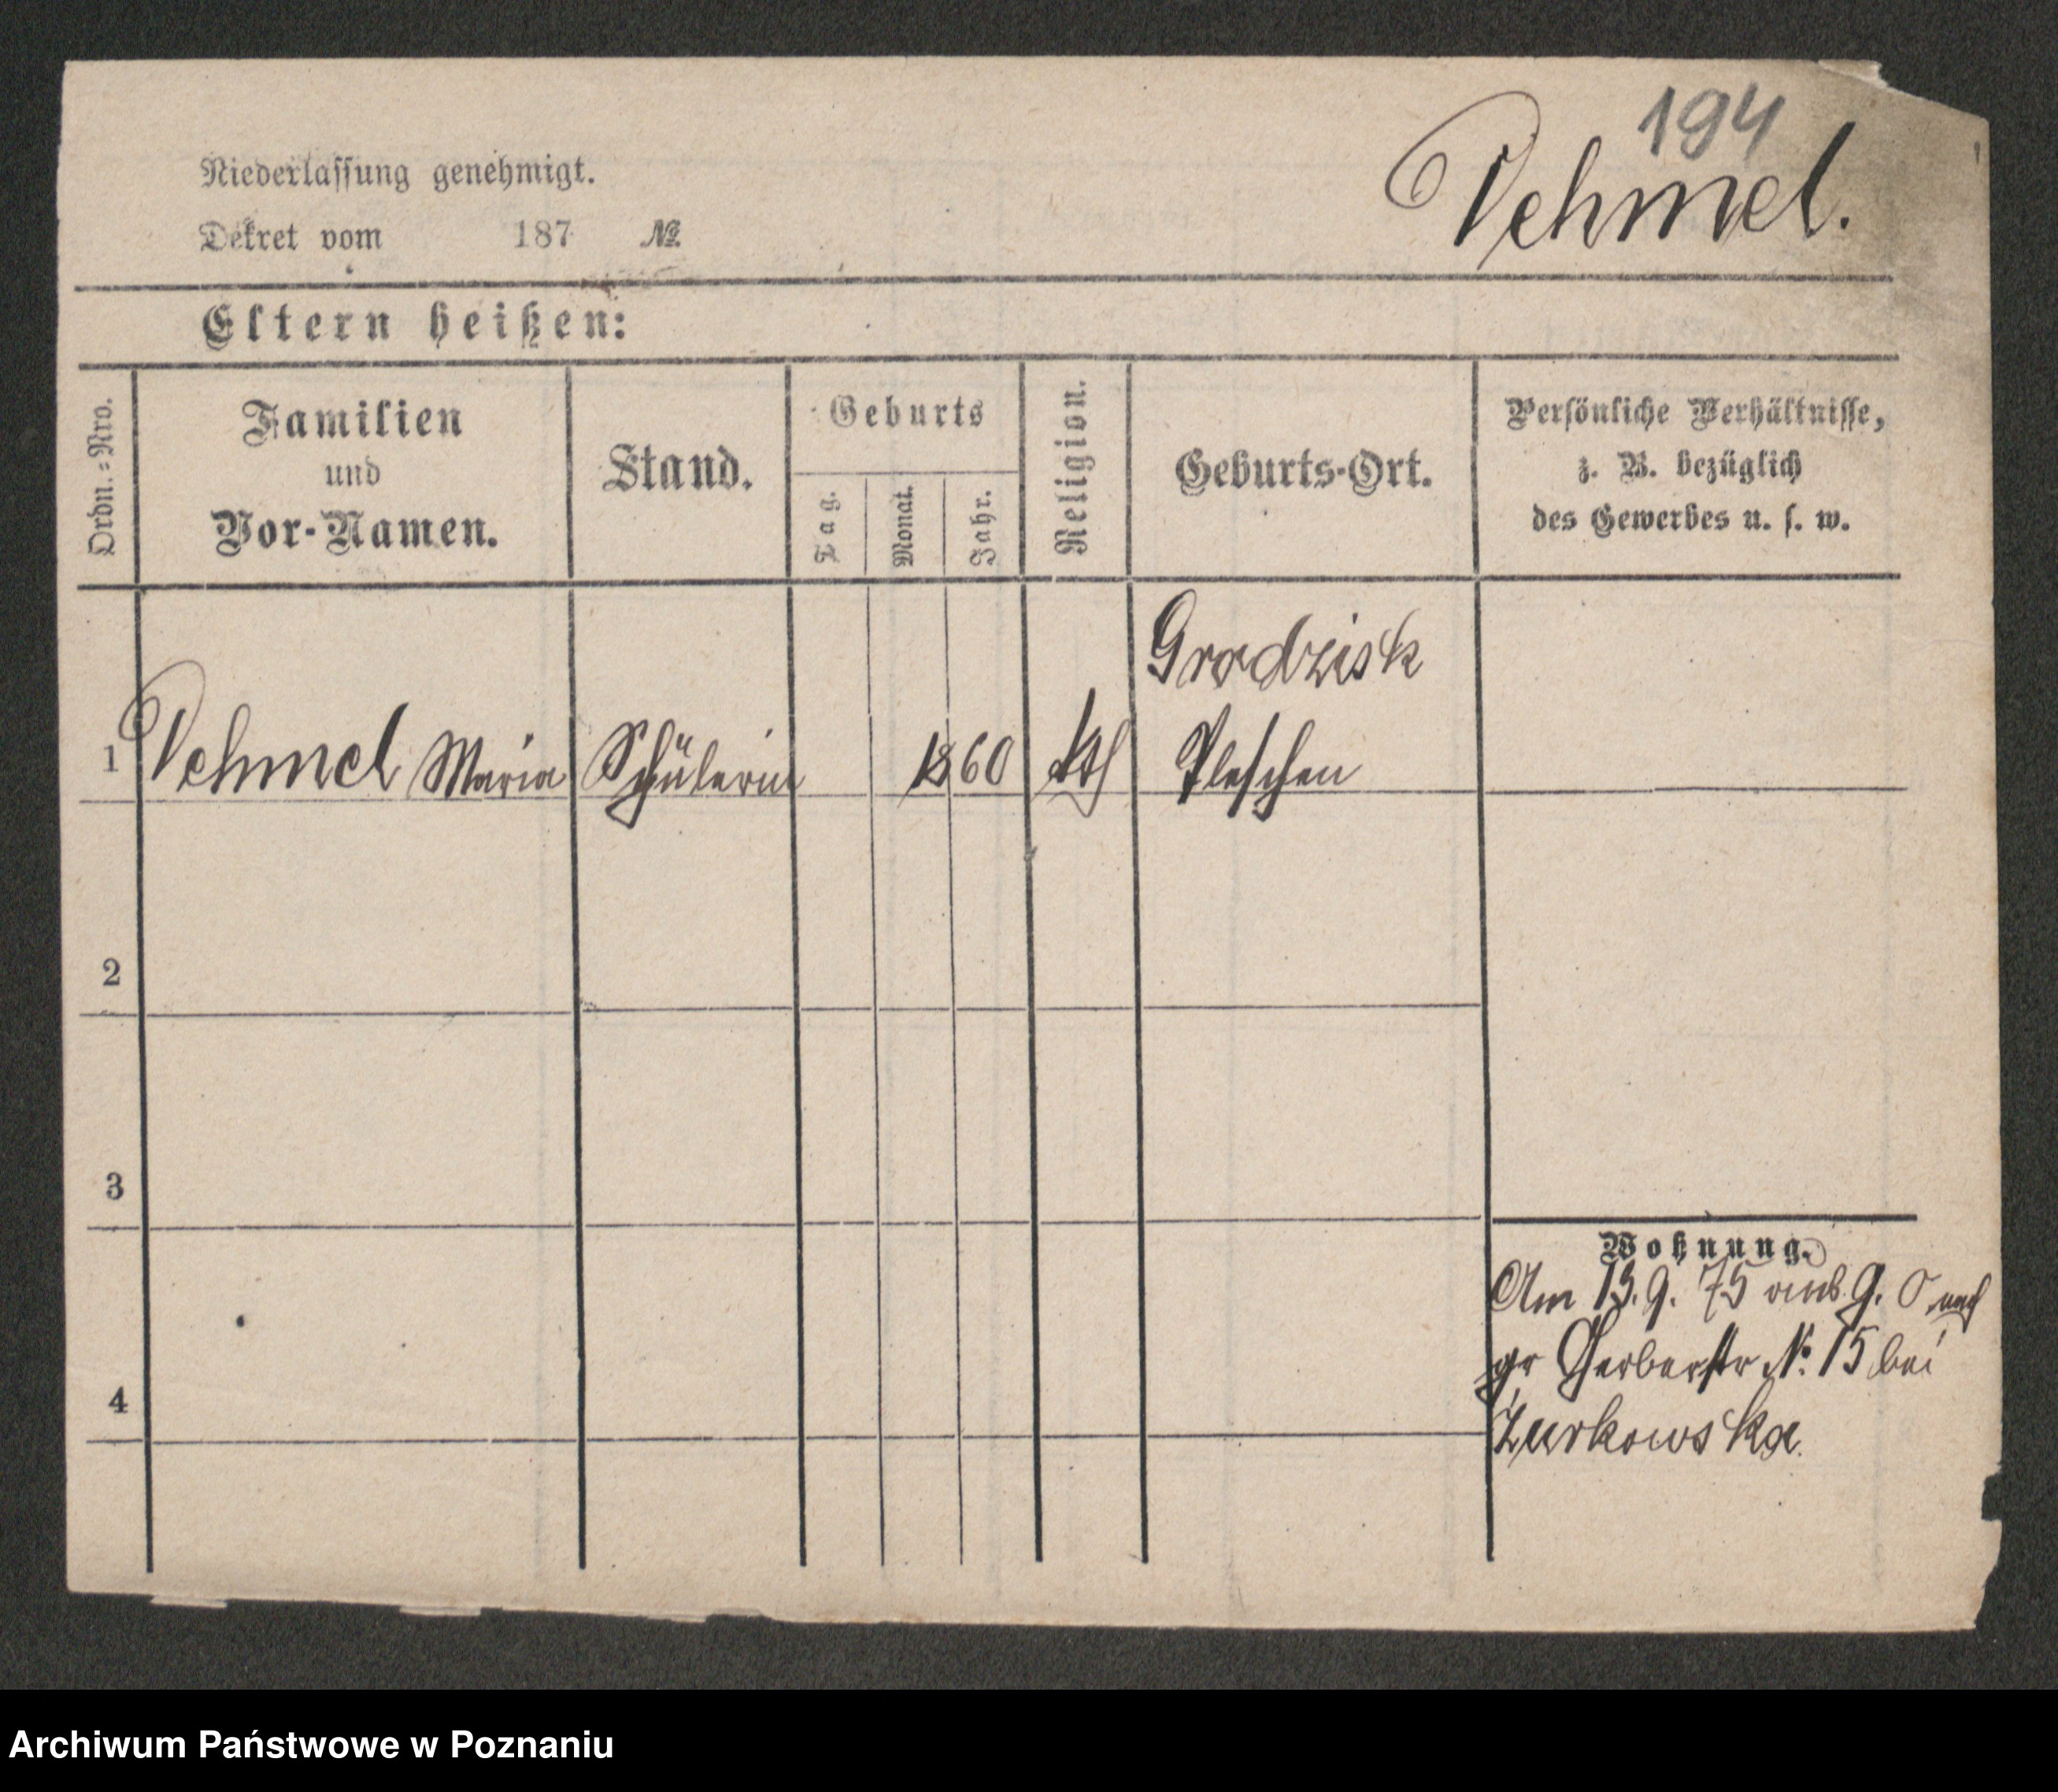 194
Vehmel.
Niederlassung genehmigt.
Dekret vom 187 №
Eltern heißen:
Ordn.=Nro.
Familien
und
Vor-Namen.
Stand.
Geburts
Tag.
Monat.
Jahr.
Religion.
Geburts-Ort.
Persönliche Verhältnisse,
z. B. bezüglich
des Gewerbes u. s. w.
Grodzisk
1 Vehmel Maria Schülerin 1860 kth Pleschen
2
3
4
Wohnung.
Am 13. 9. 75 9. O nach
gr Gerberstr №. 15 bei
Żurkowska.
Archiwum Państwowe w Poznaniu